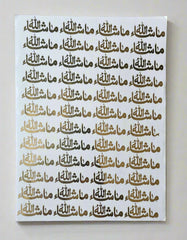 ما شاء الله ما شاء الله ما شاء الله ما شاء الله
ما شاء الله ما شاء الله ما شاء الله ما شاء الله
ما شاء الله ما شاء الله ما شاء الله ما شاء الله
ما شاء الله ما شاء الله ما شاء الله ما شاء الله
ما شاء الله ما شاء الله ما شاء الله ما شاء الله
ما شاء الله ما شاء الله ما شاء الله ما شاء الله
ما شاء الله ما شاء الله ما شاء الله ما شاء الله
ما شاء الله ما شاء الله ما شاء الله ما شاء الله
ما شاء الله ما شاء الله ما شاء الله ما شاء الله
ما شاء الله ما شاء الله ما شاء الله ما شاء الله
ما شاء الله ما شاء الله ما شاء الله ما شاء الله
ما شاء الله ما شاء الله ما شاء الله ما شاء الله